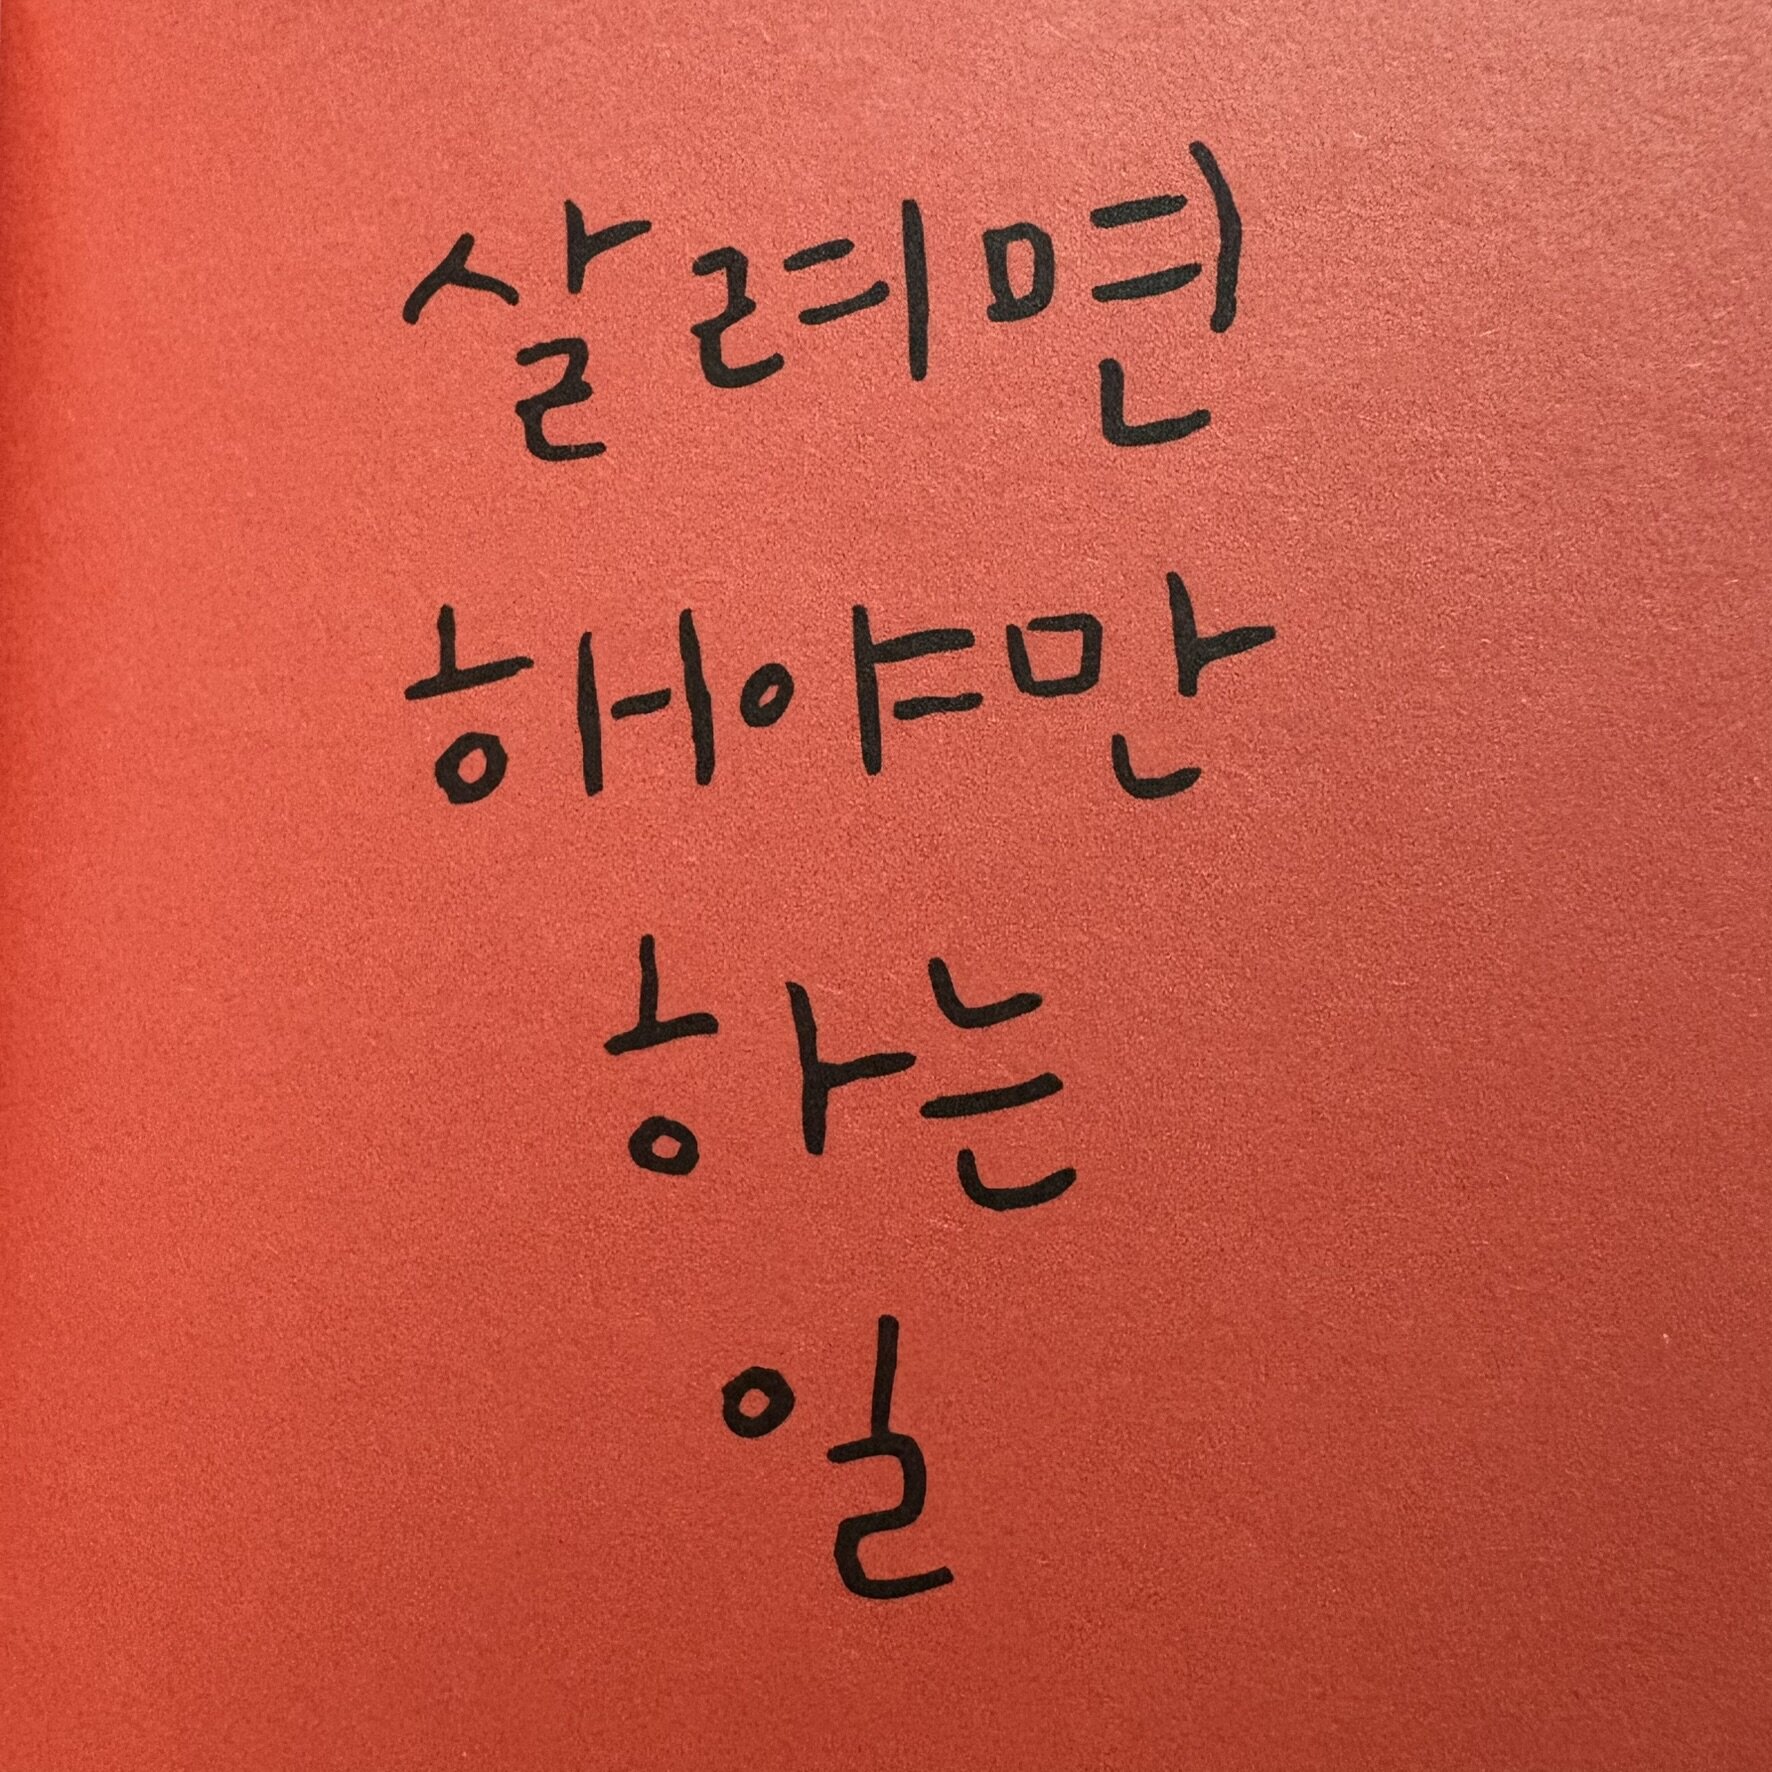 살려면
해야만
하는
일